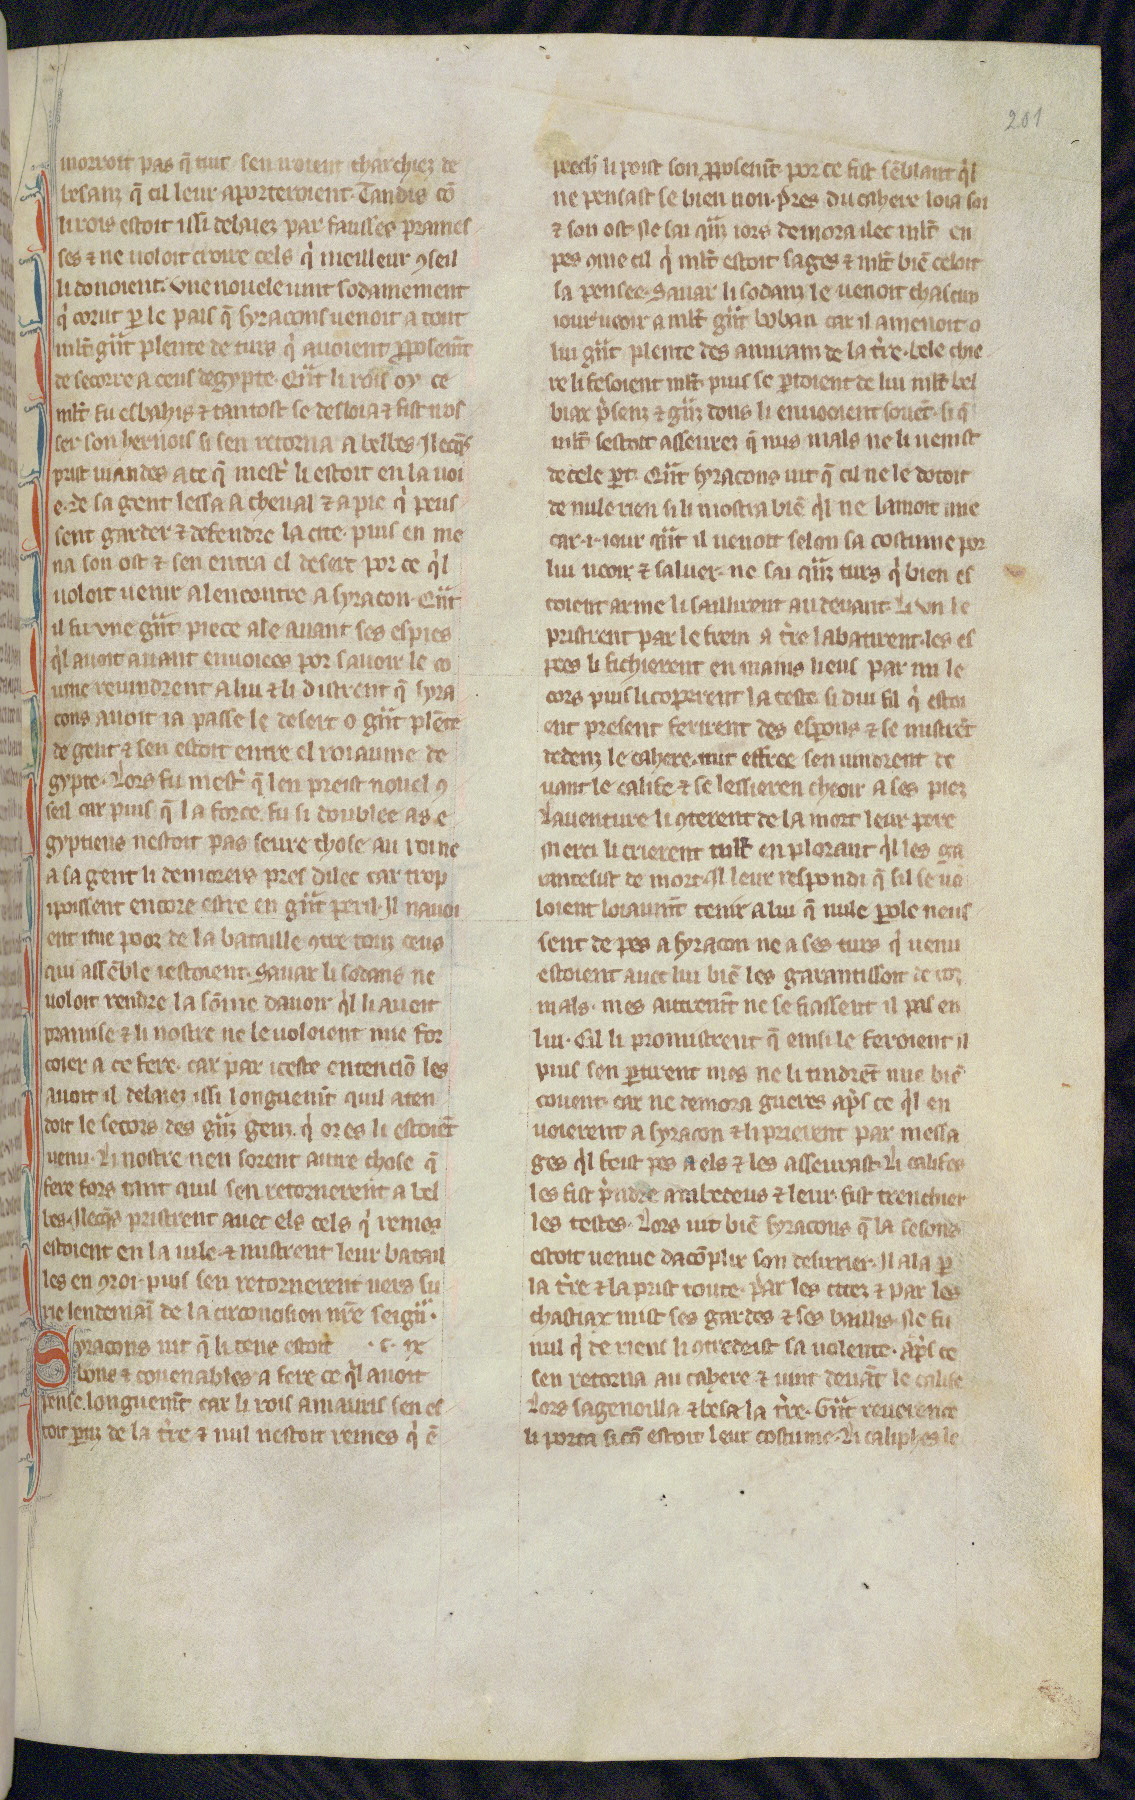 201
morroit pas q̃ tuit sen iroient charchiez de
besanz q̃ cil leur aporteroient. Tandis cõ
li rois estoit issi delaiez par fausses pramef
ses ⁊ ne uoloit croire cels q̇ meilleur ꝯseil
li donoient. Vne nouele uint sodainement
q̇ corut p̲ le pais q̃ syracons uenoit a tout
mlt̃ gñt plente de turs q̇ auoient ꝓposemt̃
de secorre a ceus degypte. Qñt li rois oy ce
mlt̃ fu esbahis ⁊ tantost se desloia ⁊ fist tros
ser son hernois si sen retorna a belbes. Ilecq̃s
prist uiandes a ce q̃ mest̃ li estoit en la uoi
e. De sa gent lessa a cheual ⁊ a pie q̇ peus
sent garder ⁊ defendre la cite. puis en me
na son ost ⁊ sen entra el desert por ce q̇l
uoloit uenir alencontre a syracon. Qñt
il fu vne gñt piece ale auant ses espies
q̇l auoit auant enuoiees por sauoir le co
uine reuindrent a lui ⁊ li distrent q̃ syra
cons auoit ia passe le desert o gñt plẽte
de gent ⁊ sen estoit entre el roiaume de
gypte. Lors fu mest̃ q̃ len preist nouel ꝯ
seil car puis q̃ la force fu si doublee as e
gyptiens nestoit pas seure chose au roi ne
a sa gent li demorers pres dilec car trop
i poissent encore estre en gñt peril. Il nauoi
ent mie poor de la bataille ꝯtre touz ceus
qui assẽble iestoient. Sauar li sodans ne
uoloit rendre la sõme dauoir q̇l li auoit
pramise ⁊ li nostre ne le uoloient mie for
coier a ce fere. car par iceste entenciõ les
auoit il delaiez issi longuemt̃ quil aten
doit le secors des gñz genz q̇ ores li estoiẽt
uenu. Li nostre nen sorent autre chose q̃
fere fors tant quil sen retornerent a bel
bes. Ilecq̃s pristrent auec els cels q̇ remes
estoient en la uile ⁊ mistrent leur batail
les en ꝯroi. puis sen retornerent uers su
rie lendemaĩ de la circoncision nr̃e seigñ.
Syracons uit q̃ li tens estoit . c . ix
bons ⁊ couenables a fere ce q̇l auoit
pense longuemt̃ car li rois amauris sen es
toit p̲tiz de la tr̃e ⁊ nul nestoit remes q̇ ẽ
pech̃ li poist son ꝓposemt̃. por ce fist sẽblant q̇l
ne pensast se bien non. Pres du cahere loia soi
⁊ son ost. Ne sai qñz iors demora ilec mlt̃ en
pes ꝯme cil q̇ mlt̃ estoit sages ⁊ mlt̃ biẽ celoit
sa pensee. Sauar li sodanz le uenoit chascun
iour ueoir a mlt̃ gñt boban car il amenoit o
lui gñt plente des amiranz de la tr̃e. bele chie
re li fesoient mlt̃ puis se p̲toient de lui mlt̃ bel
biax p̃senz ⁊ gñz dons li enuoient souẽt. si q̃
mlt̃ sestoit asseurez q̃ nus mals ne li uenist
de cele p̲t. Qñt syracons uit q̃ cil ne le dotoit
de nule rien si li mostra biẽ q̇l ne lamoit mie
car .i. iour qñt il uenoit selon sa costume por
lui ueoir ⁊ saluer. ne sai qñz turs q̇ bien es
toient arme li saillirent au deuant. Li vn le
pristrent par le frein a tr̃e labatirent. les es
pees li fichierent en mains lieus par mi le
cors puis li coperent la teste. si dui fil q̇ estoi
ent present ferirent des esp̲ons ⁊ se mistrẽt
dedenz le cahere. tuit effree sen uindrent de
uant le calife ⁊ se lessieren cheoir a ses piez
Lauenture li ꝯterent de la mort leur pere
Merci li crierent tuit en plorant q̇l les ga
rantesist de mort. Il leur respondi q̃ sil se uo
loient loiaumt̃ tenir a lui q̃ nule p̲ole neus
sent de pes a syracon ne a ses turs q̇ uenu
estoient auec lui biẽ les garantissoit de toz
mals. mes autremt̃ ne se fiassent il pas en
lui. Cil li promistrent q̃ einsi le feroient il
puis sen p̲tirent mes ne li tindrẽt mie biẽ
couent. car ne demora gueres ap̃s ce q̇l en
uoierent a syracon ⁊ li prierent par messa
ges q̇l feist pes a els ⁊ les asseurast. Li califes
les fist p̃ndre ambedeus ⁊ leur fist trenchier
les testes. Lors uit biẽ syracons q̃ la sesons
estoit uenue dacõplir son desirrier. Il ala p̲
la tr̃e ⁊ la prist toute. Par les citez ⁊ par les
chastiax mist ses gardes ⁊ ses baillis. Ne fu
nul q̇ de riens li ꝯtredeist sa uolente. Ap̃s ce
sen retorna au cahere ⁊ uint deuãt le calife
Lors sagenoilla ⁊ besa la tr̃e. Gñt reuerence
li porta si cõ estoit leur costume. Li caliphes le